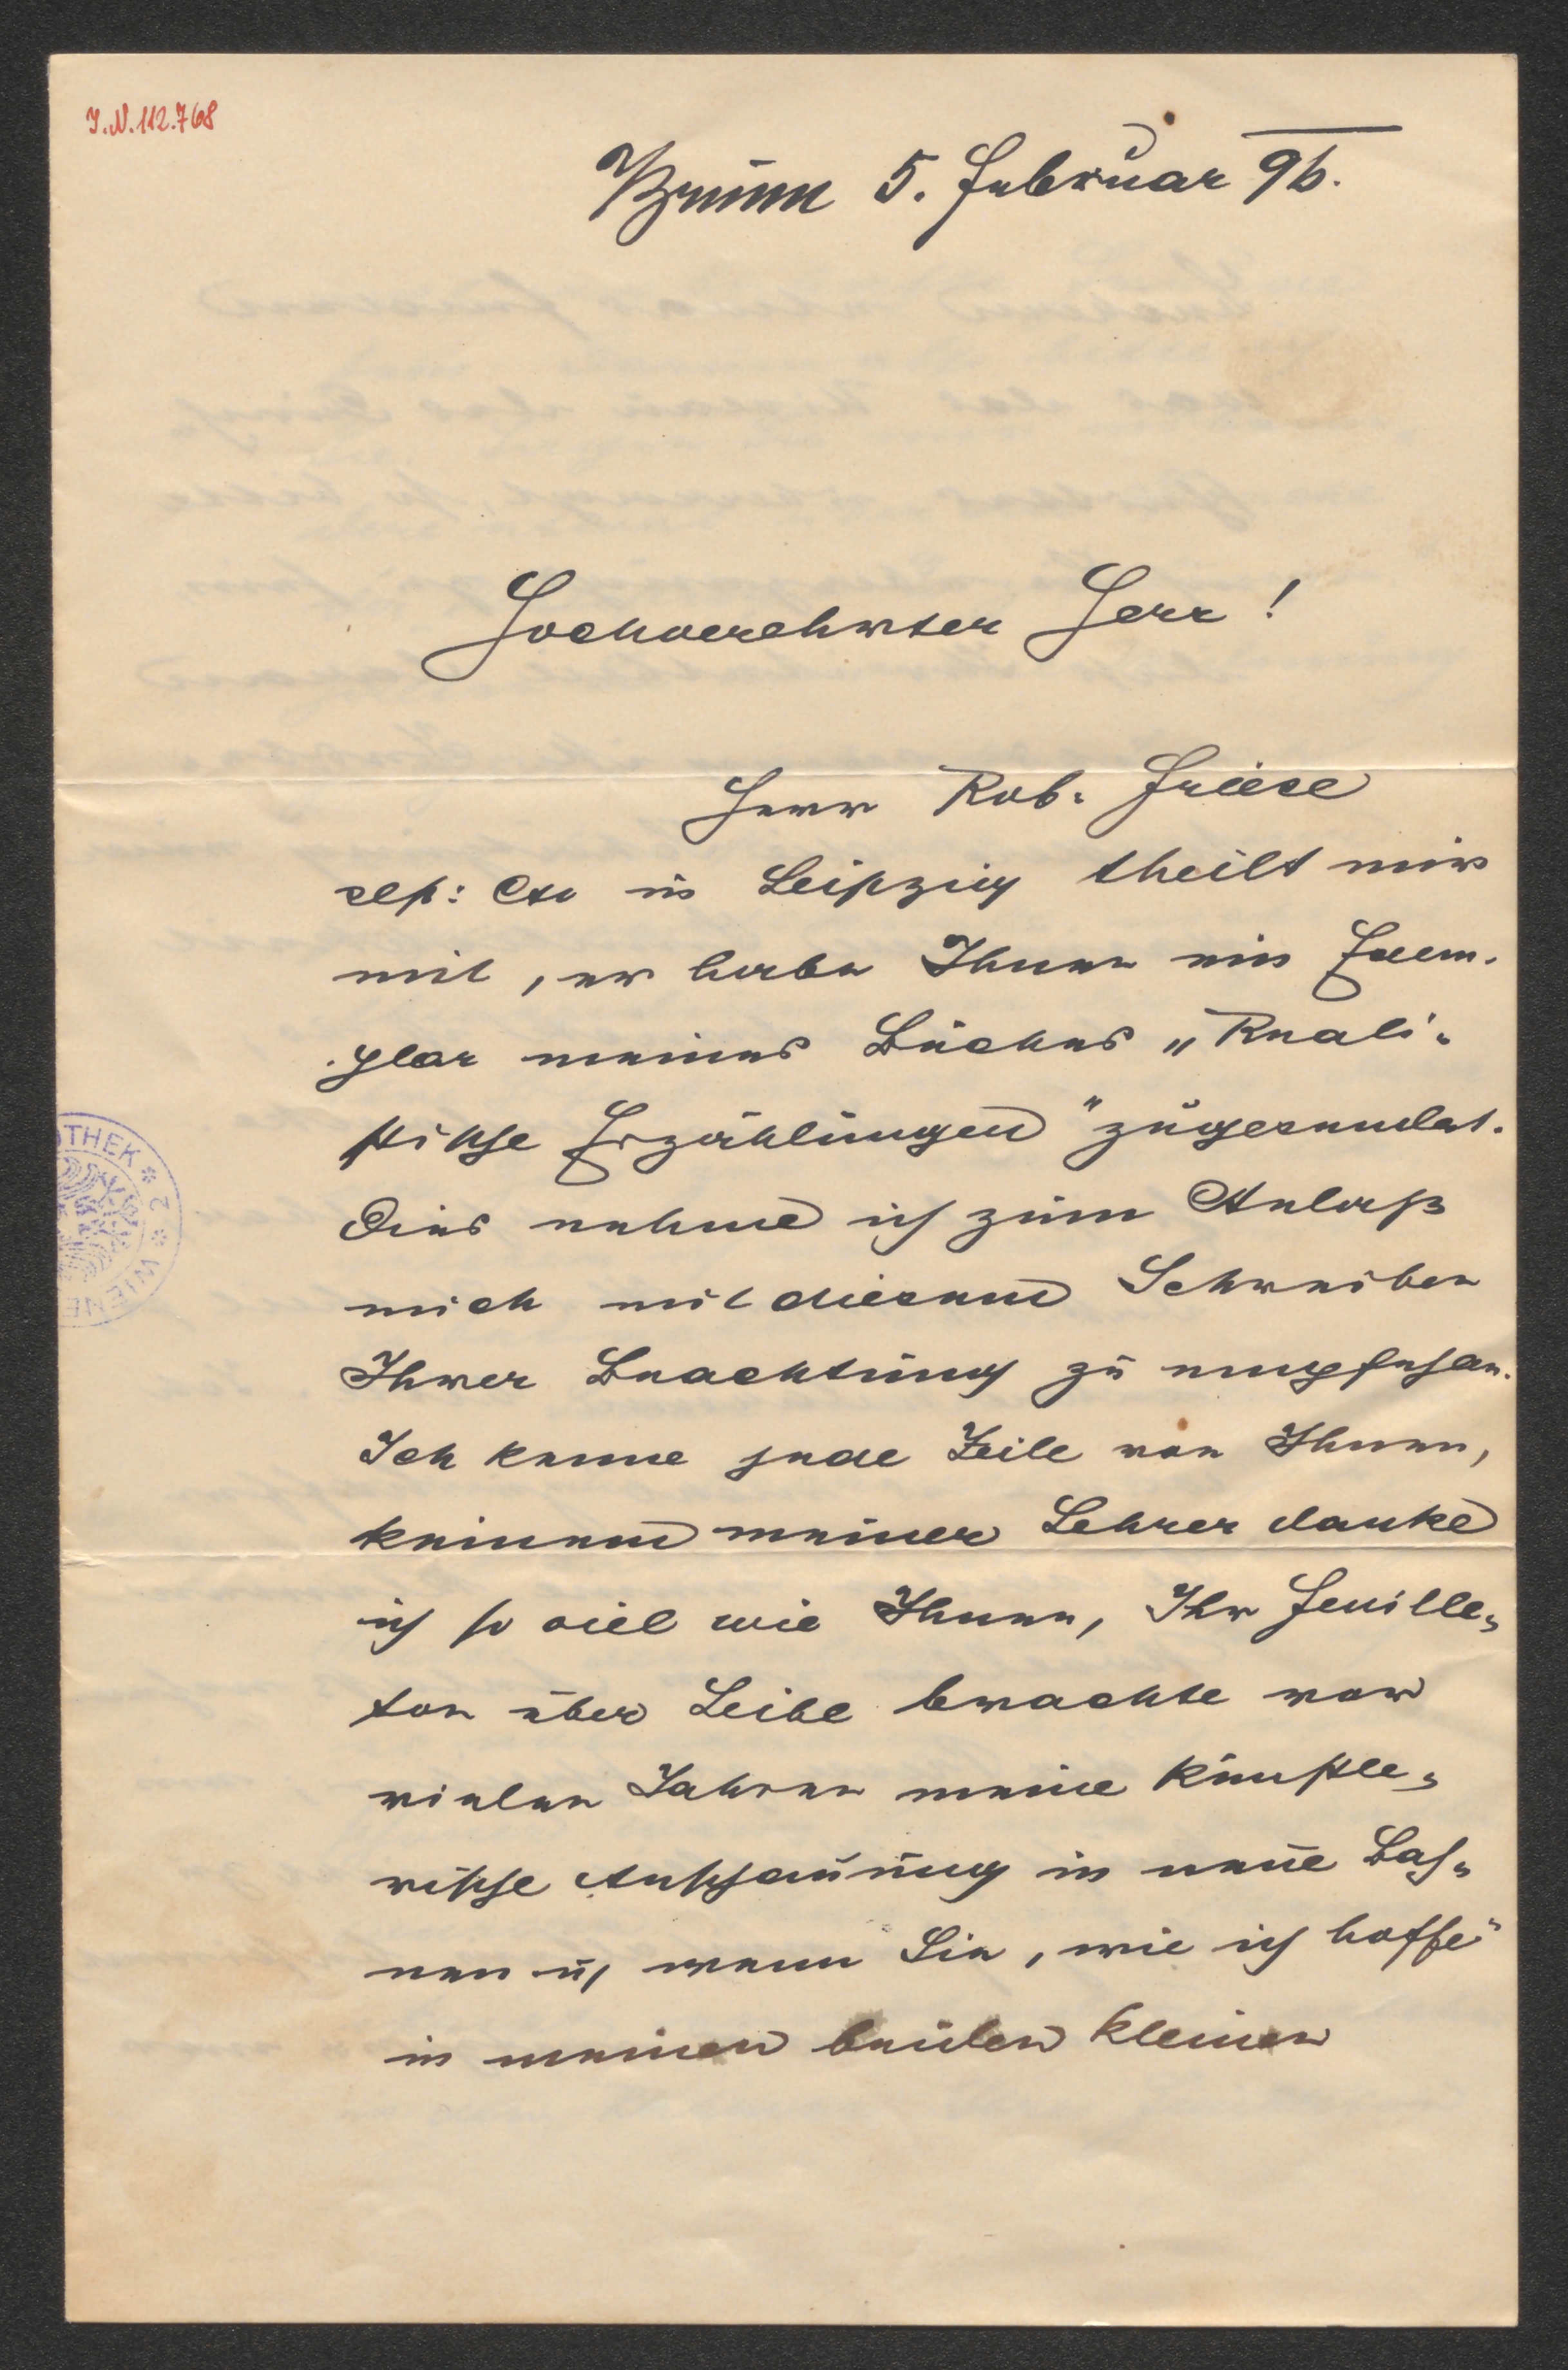 I.N. 112.768
Brünn 5. Februar 96.
Hochverehrter Herr!
Herr Rob. Friese
sep: Cto in Leipzig theilt mir
mit, er habe Ihnen ein Exem-
plar meines Buches „Reali-
stische Erzählungen" zugesendet.
Dies nehme ich zum Anlaß
mich mit diesem Schreiben
Ihrer Beachtung zu empfehlen.
Ich kenne jede Zeile von Ihnen,
keinem meiner Lehrer danke
ich so viel wie Ihnen, Ihr Feuille-
ton über Leibl brachte vor
vielen Jahren meine künstle-
rische Anschauung in neue Bah-
nen u, wenn Sie, wie ich hoffe
in meinen beiden kleinen
OTHEK * 2 * WIENE